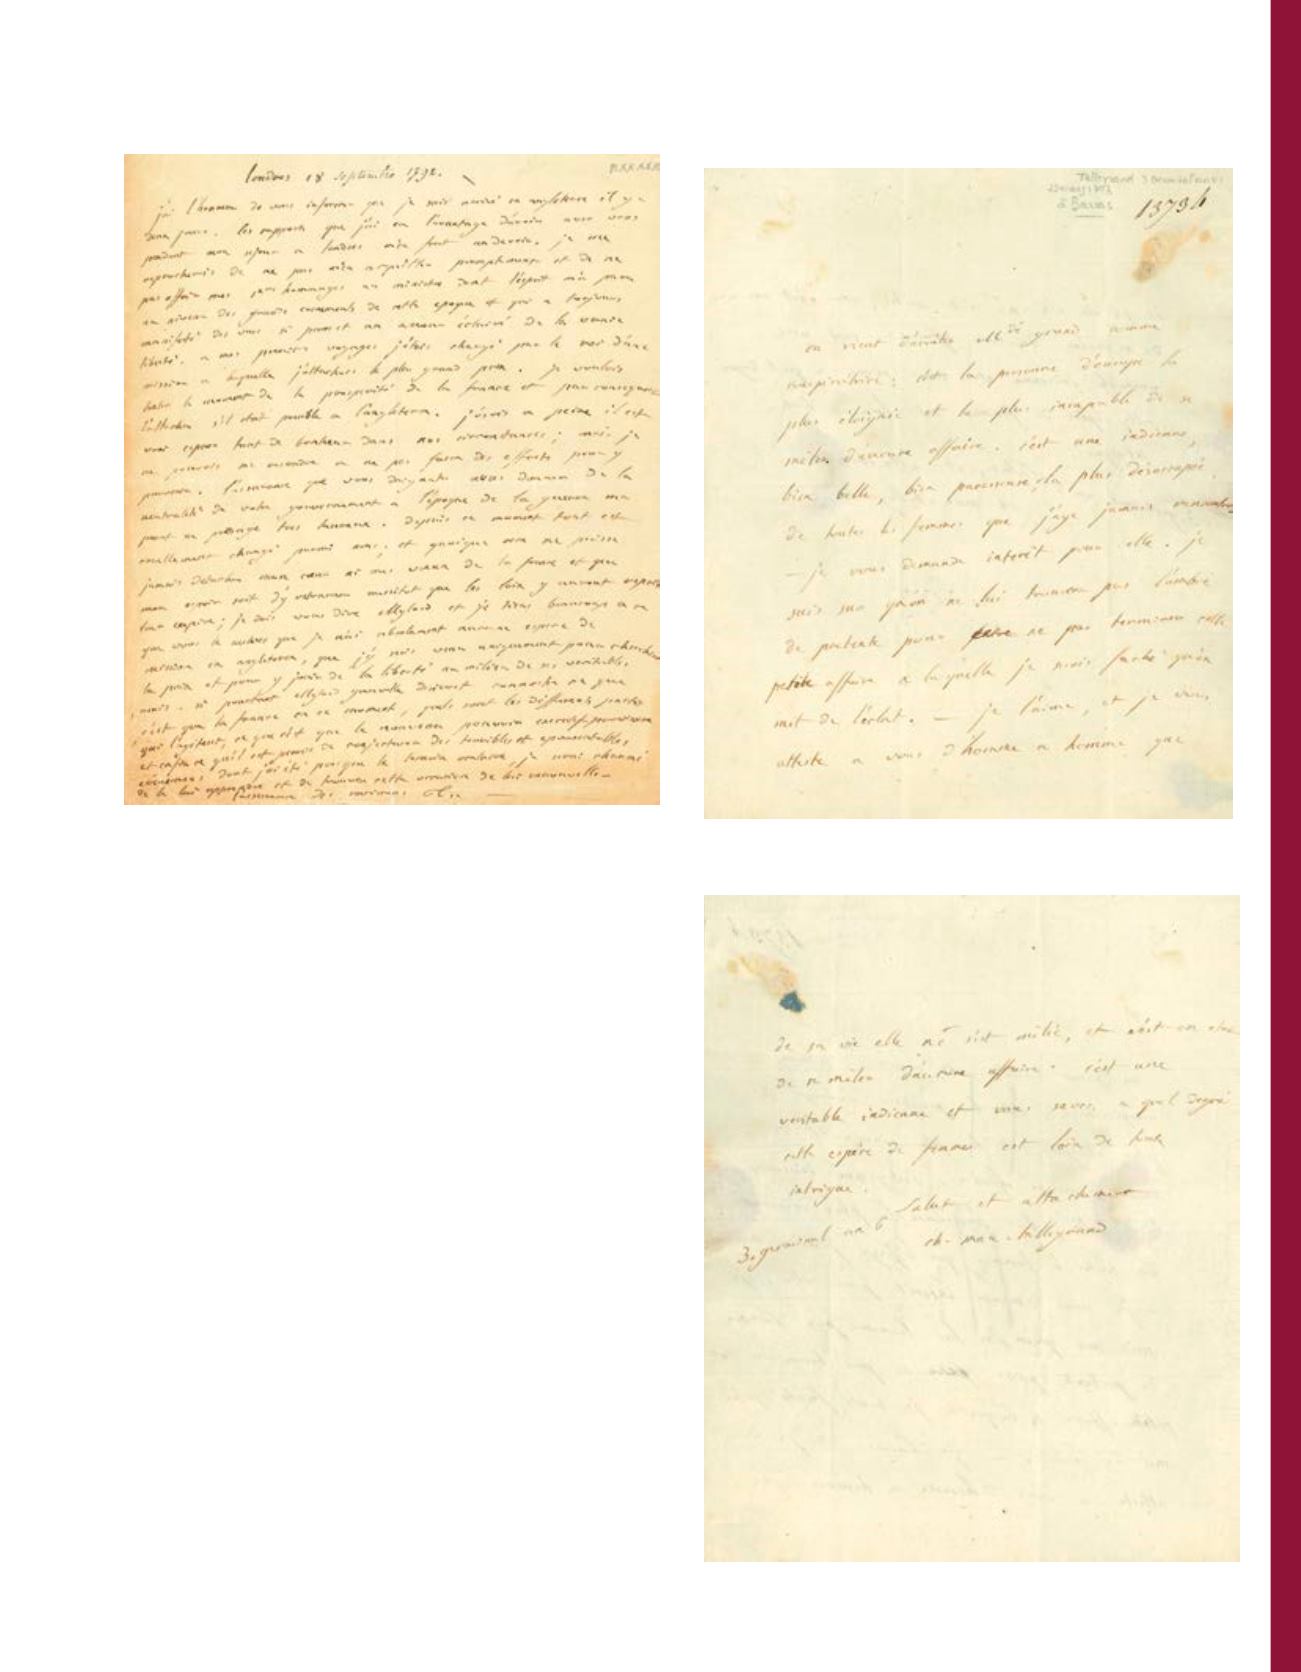 londres 18 septembre 1792.
j'ai l'honneur de vous informer que je suis arrivé en angleterre il y a
deux jours. les rapports que j'ai eu l'avantage d'avoir avec vous
pendant mon séjour a londres m'en font un devoir. je me
reprocherois de ne pas m'en acquitter promptement et de ne
pas offrir mes hommages au ministre dont l'esprit m'a paru
au niveau des grands evenements de cette epoque et qui a toujours
manifesté des vues si pures et un amour éclairé de la vraie
liberté. a mes premiers voyages j'étois chargé par le roi d'une
mission a laquelle j'attachois le plus grand prix. je voulois
hater le moment de la prosperité de la france et par consequent
l'attacher s'il etoit possible a l'angleterre. j'osois a peine il est
vrai esperer tant de bonheur dans nos circonstances; mais je
ne pouvois me resoudre a ne pas faire des efforts pour y
parvenir. l'assurance que vous daignates nous donner de la
neutralité de votre gouvernement a l'epoque de la guerre me
parut un présage tres heureux. depuis ce moment tout est
cruellement changé parmi nous; et quoique rien ne puisse
jamais detacher mon coeur ni mes voeux de la france et que
mon espoir soit d'y retourner aussitot que les loix y auront repris
leur empire; je dois vous dire mylord et je tiens beaucoup a ce
que vous le sachiez que je n'ai absolument aucune espece de
mission en angleterre, que j'y suis venu uniquement pour chercher
la paix et pour y jouir de la liberté au milieu de ses veritables
amis. si pourtant mylord grenville desiroit connoitre ce que
c'est que la france en ce moment, quels sont les differents partis
qui l'agitent, ce que c'est que le nouveau pouvoir executif provisoire
et enfin ce qu'il est permis de conjecturer des terribles et epouvantables
evenemens dont j'ai été presque le temoin oculaire, je serai charmé
de le lui apprendre et de trouver cette occasion de lui renouveller
l'assurance des
Talleyrand
à Barras
13794
on vient d'arrêter mde grand comme
conspiratrice: c'est la personne d'europe la
plus éloignée et la plus incapable de se
mêler d'aucune affaire. c'est une indienne,
bien belle, bien paresseuse, la plus desoccupée
de toutes les femmes que j'aye jamais rencontré
— je vous demande interêt pour elle. je
suis sur qu'on ne lui trouvera pas l'ombre
de pretexte pour ne pas terminer cette
petite affaire a laquelle je serois faché qu'on
mit de l'éclat. — je l'aime, et je vous
atteste a vous d'homme a homme que
de sa vie elle ne s'est mêlée, et n'est en etat
de se mêler d'aucune affaire. c'est une
veritable indienne et vous savez a quel degré
cette espèce de femmes est loin de toute
intrigue.
Salut et attachement
3 germinal an 6
ch. mau. talleyrand